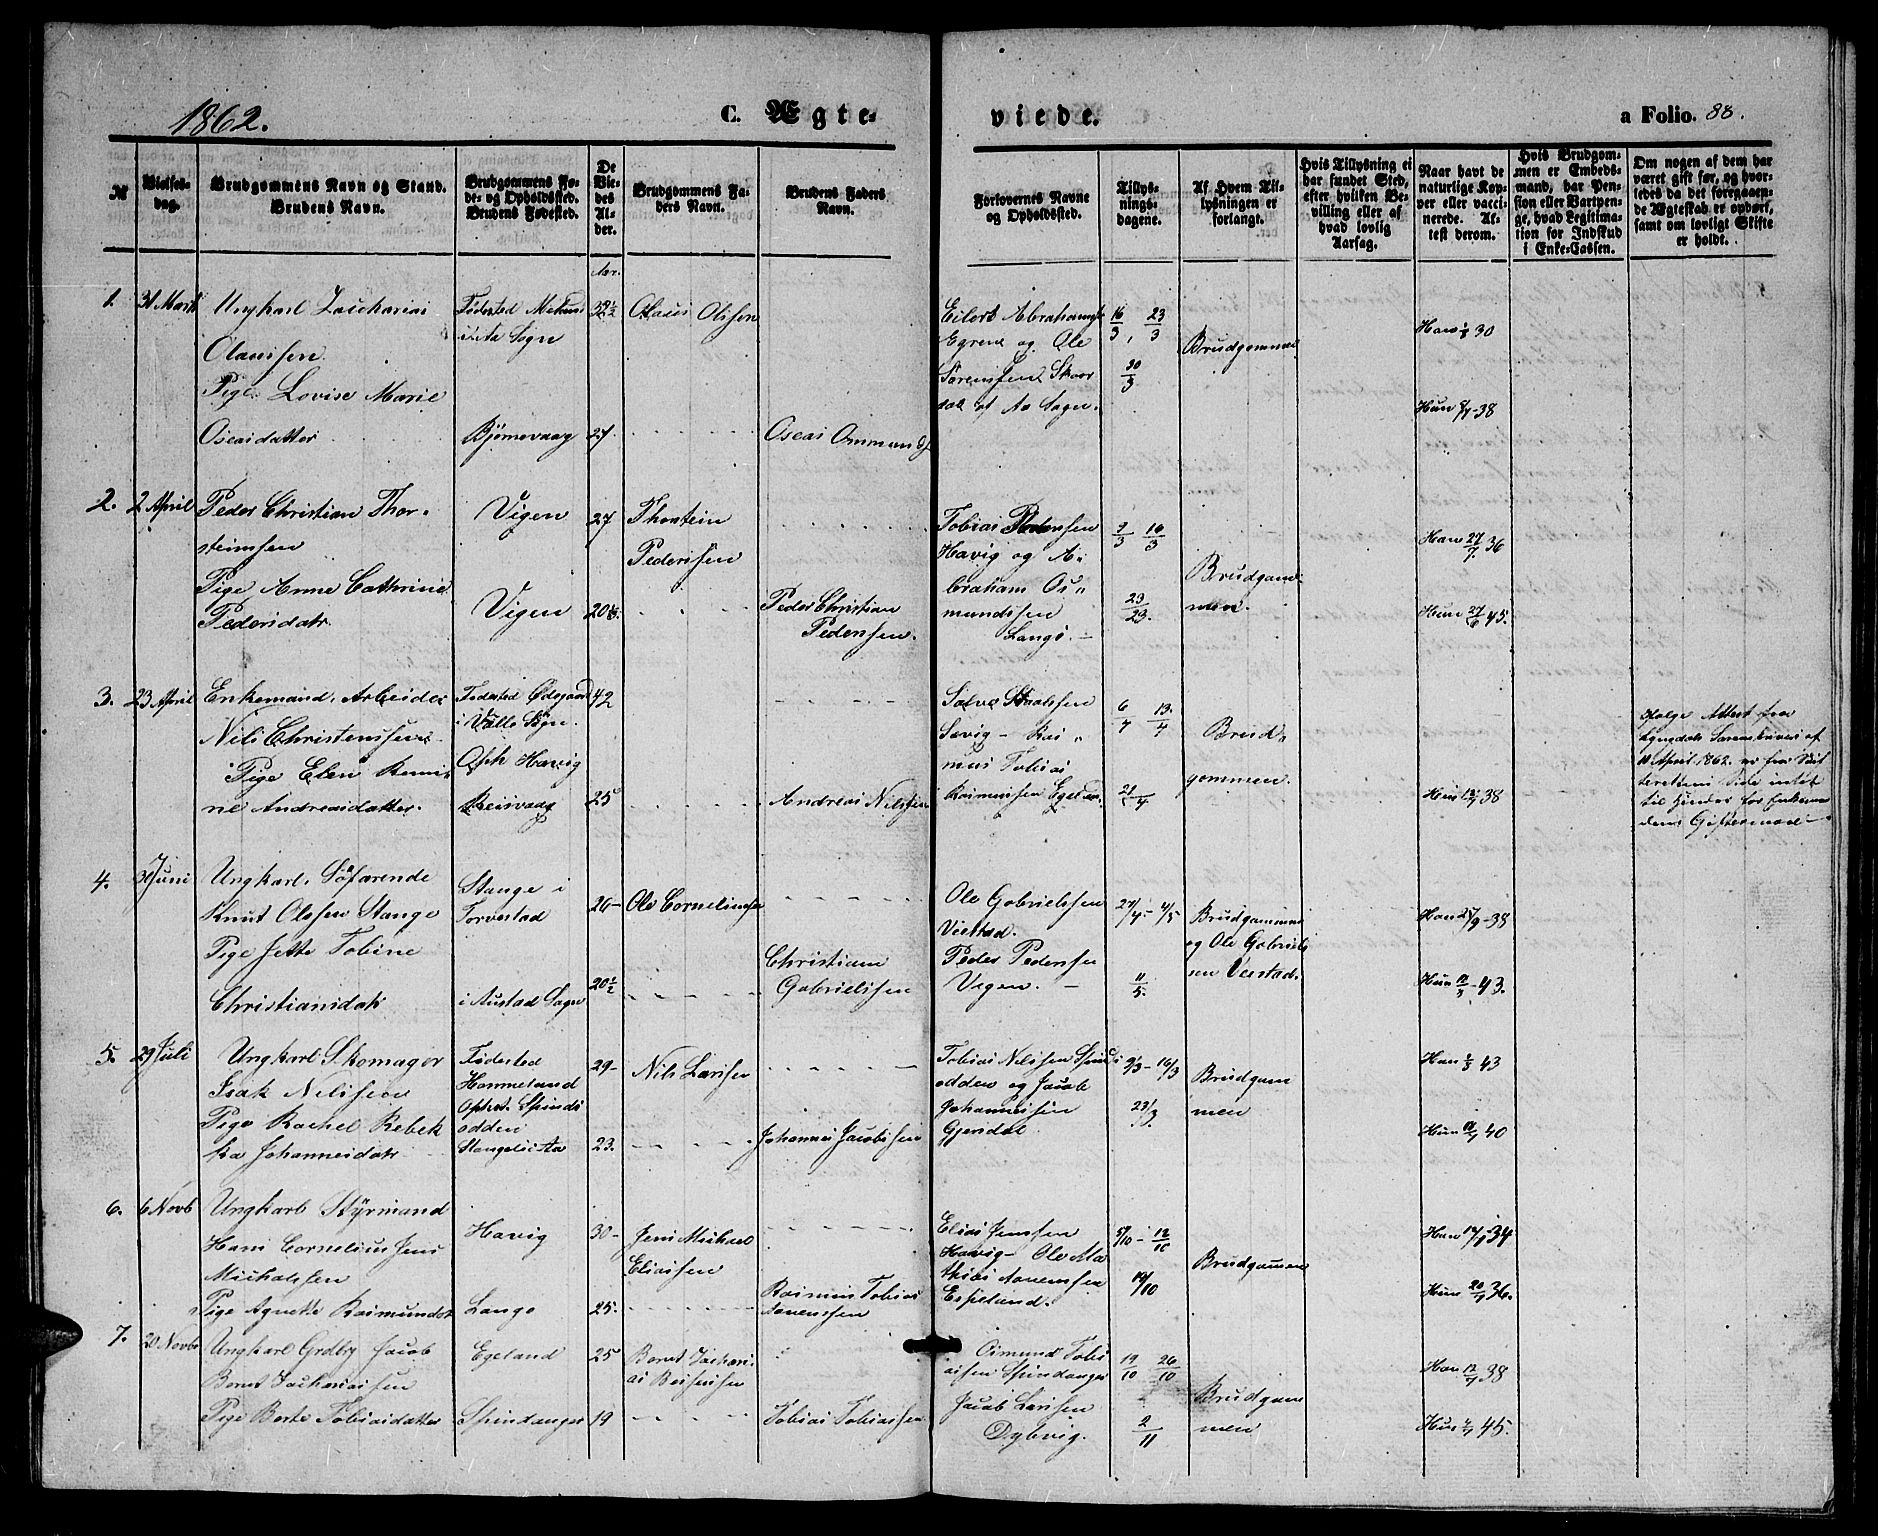 1862.
C. Ægte-
viede.
a Folio. 88.
№
Vielses-
dag.
Brudgommens Navn og Stand.
Brudens Navn.
Brudgommens Fø-
de- og Opholdssted.
Brudens Fødested.
De
Vie-
des
Al-
der.
Brudgommens Fa-
ders Navn.
Brudens Faders
Navn.
Forlovernes Navne
og Opholdssted.
Tillys-
nings-
dagene.
Af Hvem Til-
lysningen er
forlangt.
Hvis Tillysning ei
har fundet Sted,
efter hvilken Be-
villing eller af
hvad lovlig
Aarsag.
Naar havt de
naturlige Kop-
per eller vacci-
nerede. At-
test derom.
Hvis Brudgom-
men er Embeds-
mand, har Pen-
sion eller Vartpen-
ge, hvad Legitima-
tion for Indskud
i Enke-Cassen.
Om nogen af dem har
været gift før, og hvor-
ledes da det foregaaen-
de Ægteskab er ophørt,
samt om lovligt Skifte
er holdt.
Aar.
1.
31 Marts
Ungkarl Zacharias
Olaussen
Pige Lovise Marie
Oseasdatter
Fødested
i Aa Sogn
Bjørnevaag
27
Olaus Olssen
Oseas Ommunds
Eilert Abrahams
Egrene og Ole
Sørenssen Skaar
dal af Aa Sogn.
16/3, 23/3
30/3
Brudgommen
Han 30
Hun 38
2.
2 April
Peder Christian Thor-
steinsen
Pige Anne Cathrine
Pedersdatr
Vigen
Vigen
27
20
Thorstein
Pederssen
Peder Christian
Pederssen.
Tobias Pederssen
Havig og A-
braham Os-
mundssen
Langø.
9/3 16/3
23/23.
Brudgom-
men.
Han 27/7 36
Hun 27/6 45.
3.
23 April
Enkemand, Arbeider
Nils Christenssen
Pige Elen
ne Andreasdatter.
Fødested Ødegaard
i Valle Sogn.
Oph Havig
Reisvaag
42
25
Andreas Nilssen
Salve
Sævig - Ras-
mus Tobias
Rasmussen Egeland.
6/4 13/4
21/4
Brud-
gommen.
Hun 38
Ifølge Attest fra
Lyngdals Sorenskriveri af
11 April 1862 er fra Skif
terettens Side intet
til Hinder for Enkema
dens Giftermaal
4.
30 Juni
Ungkarl, Søfarende
Knut Olssen Stange
Pige Jette Tobine
Christiansdatr
Stange i
Torvestad
i Austad Sogn
26
20½
Ole Corneliussen
Christian
Gabrielssen
Ole Gabrielssen
Viestad.
Peder Pederssen
Vigen.
27/4 - 4/5
11/5.
Brudgommen
og Ole Gabriels
sen Viestad.
Han 25/9 - 38
Hun 12/3 - 43.
5.
29 Juli
Ungkarl Skomager
Isak Nelssen
Pige Rachel Rebek
ka Johannesdatr
Fødested
Hommeland
Ophst. Spinds
odden
Stangeli Aa
29
23.
Nils Larssen
Johannes Jacobssen
Tobias Nelssen Spinds
odden og Jacob
Johannessen
Gjerdal.
9/3 - 16/3
23/3.
Brudgom
men
Han 43
Hun 40
6.
6 Novb
Ungkarl Styrmand
Hans Cornelius Jens
Michalssen
Pige Agnette Rasmusdatr
Havig
Lange
30
25.
Jens Michael
Eliassen
Rasmus Tobias
Aanenssen
Elias Jenssen
Havig - Ole Ma
thias Aanenssen
Espeland.
5/10 - 12/10
19/10
Brudgommen
Han 34
Hun 36.
7.
20 Novbr
Ungkarl Grdbr Jacob
Bernt Zachariassen
Pige Berte Tobiasdatter
Egeland
Spindanger
25
19
Bernt Zachari-
as
Tobias Tobiassen
Osmund Tobi
assen Spindanger
Jacob Larssen
Dybvig.
19/10 26/10
2/11
Brudgom
men
Han 38
Hun 45.